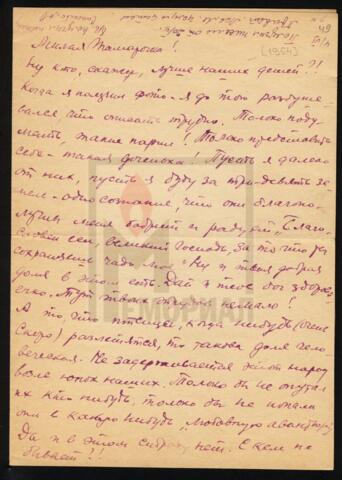 [1954]
Милая Тамарочка!
Ну кто, скажу, лучше наших детей?!!
Когда я получил фото - я до того разволно-
вался, что описать трудно. Только поду-
мать, такие парни! Только представить
себе - такая доченька! Пусть я далеко
от них, пусть я буду за три-девять зе-
мель - одно сознание, что они благопо-
лучны меня бодрит и радует. Благо-
слови сей, великий Господь, за то что ты
сохранил чадо мое. Ну и твоя добрая
доля в этом есть. Дай и тебе бог здоров-
МЕМОРИАЛ
А то, что птенцы, когда нибудь (очень
скоро) разлетятся, то такова доля чело-
веческая. Не задерживается этот народ
возле юбок наших. Только бы не опутал
их кто нибудь, только бы не попали
они в какую нибудь любовную авантюру
Да и в этом страху нет. С кем не
бывает!!